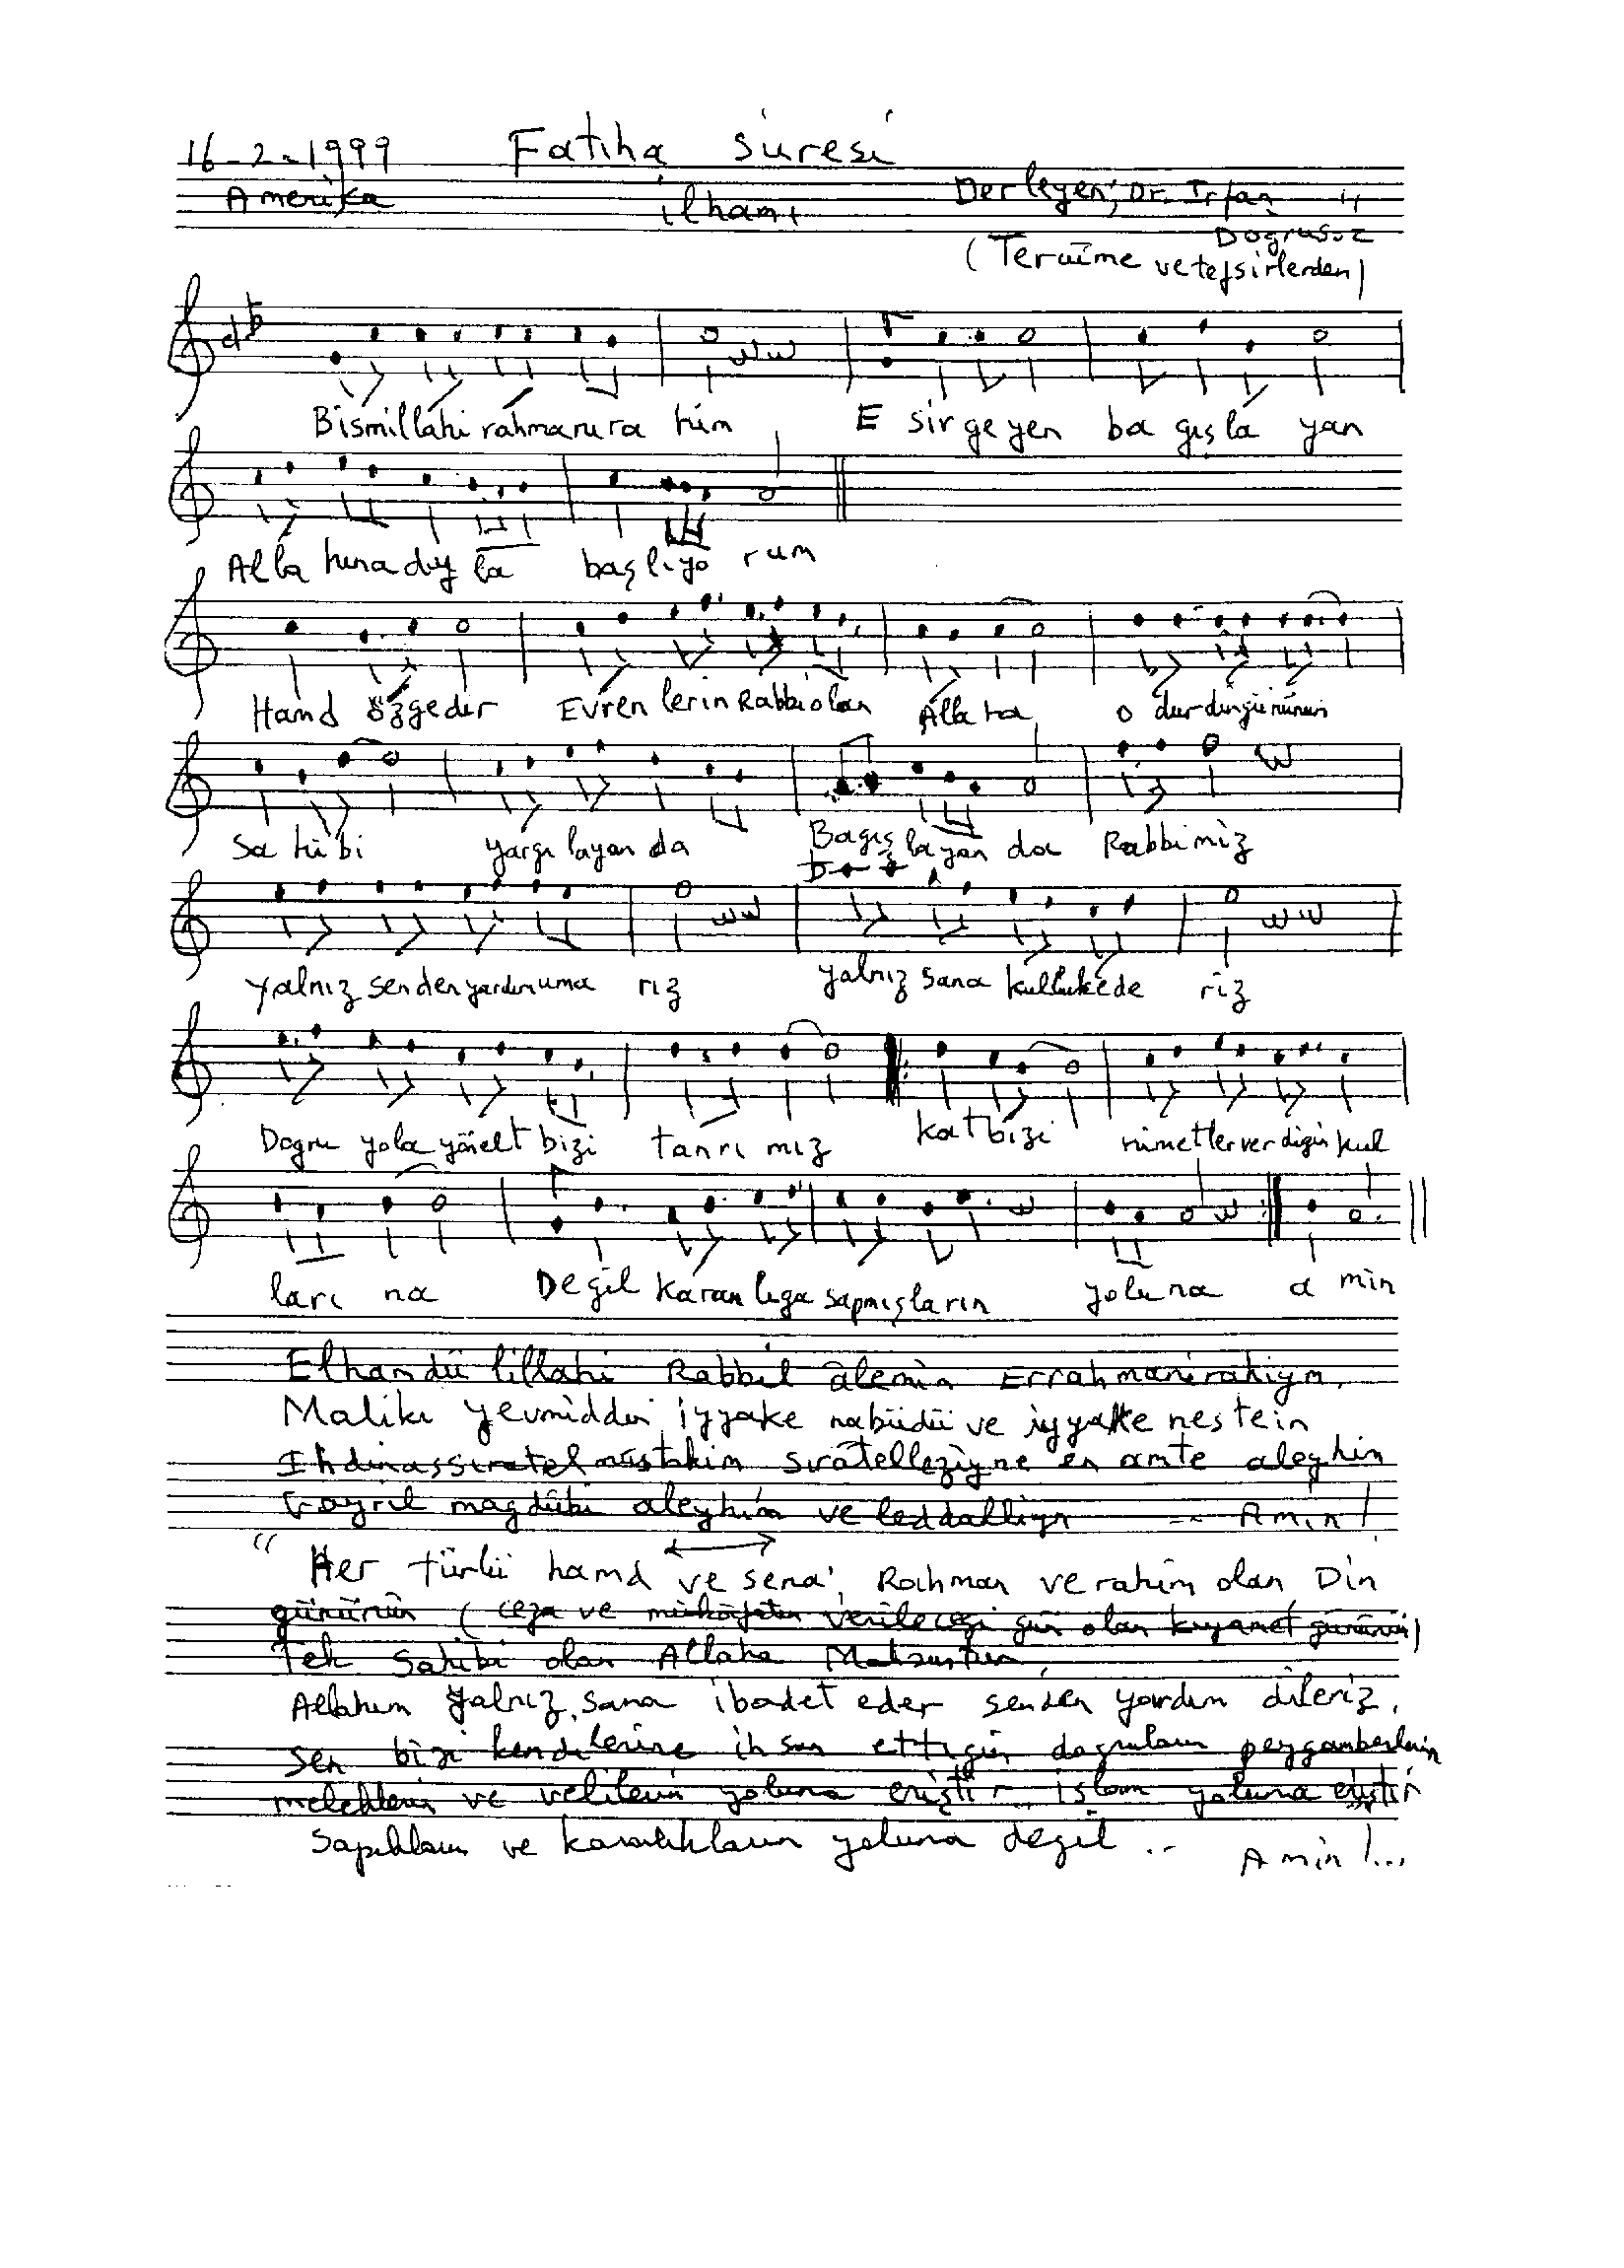 16-2-1999 Fatiha Suresi
Amerika ilhamı Derleyen; Dr. İrfan
Doğrusöz
(Tercüme ve tefsirlerden)
Bismillahi rahmanira him E sir ge yen ba gış la yan
Alla hına dıy la başlıyo rum
Hamd özgedir Evren lerin Rabbi olan Alla ha o dur din gününün
Sa hi bi yargı layan da Bagış layan da Rabbi miz
yalnız senden yardım uma rız yalnız sana kulluk ede riz
Dogru yola yönelt bizi tanrı mız kat bizi nimetler verdigin kul
ları na Degil karan lıga sapmışların yoluna a min
Elhamdü lillahi Rabbil âlemin Errahmanirahiym,
Maliki yevmiddin iyyake nabüdü ve iyyake nestein
Ihdinassıratel müstakim sırâtelleziyne en amte aleyhim
Gayril magdûbi aleyhim ve leddalliyn -- Amin!
" Her türlü hamd ve sena, Rahman ve rahim olan Din
gününün (ceza ve mükâfatın verilecegi gün olan kıyamet gününün)
Tek Sahibi olan Allaha Mahsustur,
Allahım Yalnız sana ibadet eder senden yardım dileriz.
Sen bizi kendilerine ihsan ettigin dogruların peygamberlerin
meleklerin ve velilerin yoluna eriştir. islam yoluna eriştir
Sapıkların ve yoluna degil .. Amin!...